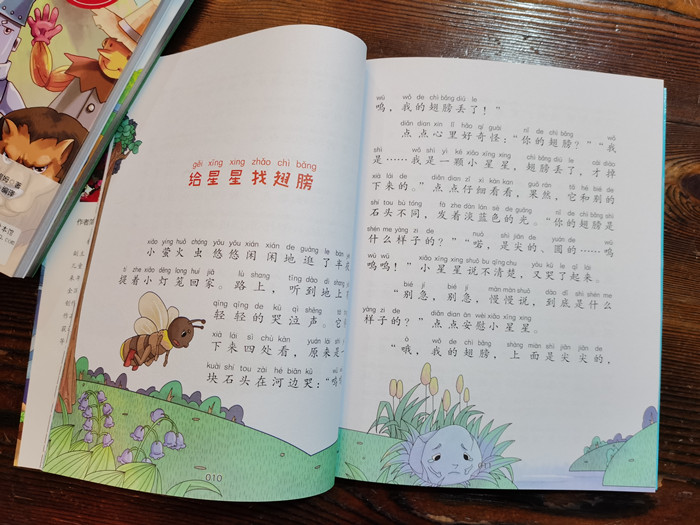 gěi xīng xing zhǎo chì bǎng
给星星找翅膀
xiǎo yíng huǒ chóng yōu yōu xián xián de guàng le bàn
小萤火虫悠悠闲闲地逛了半
tí zhe xiǎo dēng long huí jiā lù shang tīng dào dì shang
提着小灯笼回家。路上，听到地上
qīng qīng de kū qì shēng
轻轻的哭泣声。它
xià lái sì chù kàn yuán lái shì
下来四处看，原来是一
kuài shí tou zài hé biān kū wū
块石头在河边哭：“呜
010
wū wǒ de chì bǎng diū le
呜，我的翅膀丢了！”
diǎn dian xīn lǐ hǎo qí guài nǐ de chì bǎng wǒ
点点心里好奇怪：“你的翅膀？”“我
shì wǒ shì yì kē xiǎo xīng xing chì bǎng diū le cái diào
是……我是一颗小星星，翅膀丢了，才掉
xià lái de diǎn dian zǐ xì kàn kan guǒ rán tā hé bié de
下来的。”点点仔细看看，果然，它和别的
shí tou bù tóng fā zhe dàn lán sè de guāng nǐ de chì bǎng shì
石头不同，发着淡蓝色的光。“你的翅膀是
shén me yàng zi de nuò shì jiān de yuán de wū
什么样子的？”“喏，是尖的、圆的……呜
wū wū xiǎo xīng xing shuō bù qīng chu yòu kū le qǐ lái
呜呜！”小星星说不清楚，又哭了起来。
bié jí bié jí màn màn shuō dào dǐ shì shén me
“别急，别急，慢慢说，到底是什么
yàng zi de diǎn dian ān wèi xiǎo xīng xing
样子的？”点点安慰小星星。
ò wǒ de chì bǎng shàng miàn shì jiān jiān de
“哦，我的翅膀，上面是尖尖的，
011